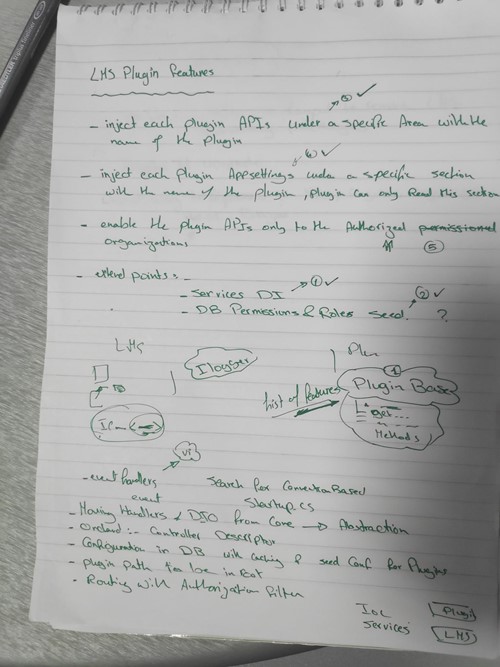 LMS Plugin Features
- inject each plugin APIs under a specific Area with the
name of the plugin
- inject each plugin Appsettings under a specific section
with the name of the plugin, plugin can only Read this section
- enable the plugin APIs only to the Authorized permissioned
organizations 5
- extend points:-
- Services DI 1
- DB Permissions & Roles seed. 2 ?
LMS
ILogger
List of features
4
Plugin Base
get...
Methods
- event handlers
event
Search for Convention Based
Startup.cs
- Moving Handlers & DTO from Core → Abstraction
- Orchard :- Controller Descriptor
- Configuration in DB with caching & seed Conf for Plugins
- plugin path to be in
- Routing with Authorization filter
IOC
Services
Plugin
LMS